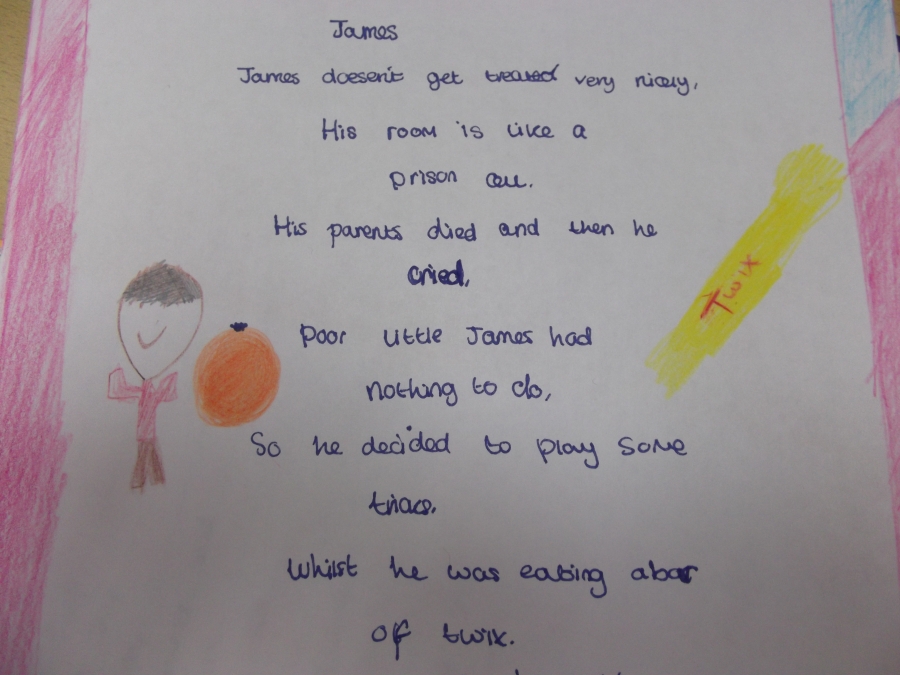 James
James doesen't get treated very nicely,
His room is like a
prison cell.
His parents died and then he
cried,
Poor little James had
nothing to do,
So he decided to play some
tricks.
Whilst he was eating abar
of twix.
Twix